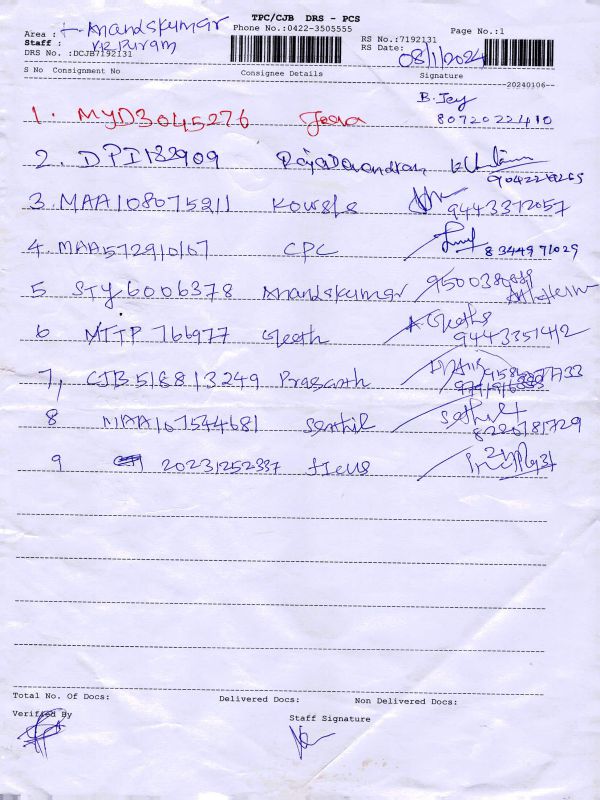 TPC/CJB DRS - PCS
Phone No.:0422-3505555
Page No.:1
Area : Anandskumar
Staff : KK Puram
RS No.:7192131
RS Date: 08/1/2024
DRS No. :DCJB7192131
S No Consignment No Consignee Details Signature
--20240106--
B. Jey
1. MYD3045276 Jeeva 8072022410
2. DPI182909
3. MAA108075211 Kowsls 9443372057
4. MAA572910107 CPC 8344971029
5 STY6006378 Anandskumar
6 MTTP 766977 Geeth A. Geetha
9443351412
7, CJB518813249 Prasanth
8 MAA107544681 Senthil
8220781729
9 20231252337
Total No. Of Docs: Delivered Docs: Non Delivered Docs:
Verified By Staff Signature